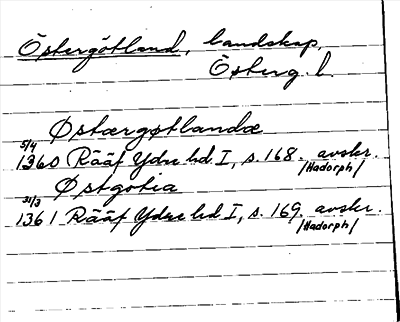 Östergötland, landskap,
Österg. l.
Østærgøtlandæ
5/4
1360 Rääf Ydre hd I, s. 168. avskr.
/Hadorph/
Østgotia
31/3
1361 Rääf Ydre hd I, s. 169. avskr.
/Hadorph/